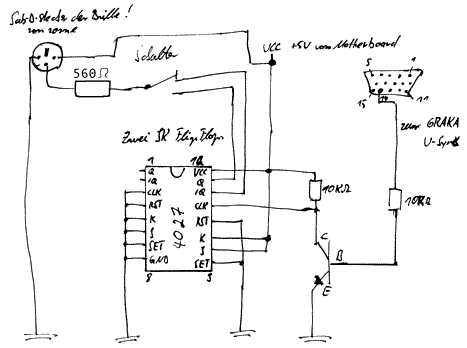 Sub-D-Stecker der Brille!
von vorne
560Ω
Schalter
VCC +5V vom Motherboard
5 1
15 11
zur GRAKA
V-Sync
Zwei JK Flip Flops
1
Q
!Q
CLK
RST
K
J
SET
GND
8
4027
VCC
Q
!Q
CLK
RST
K
J
SET
9
10KΩ
C
B
E
10KΩ